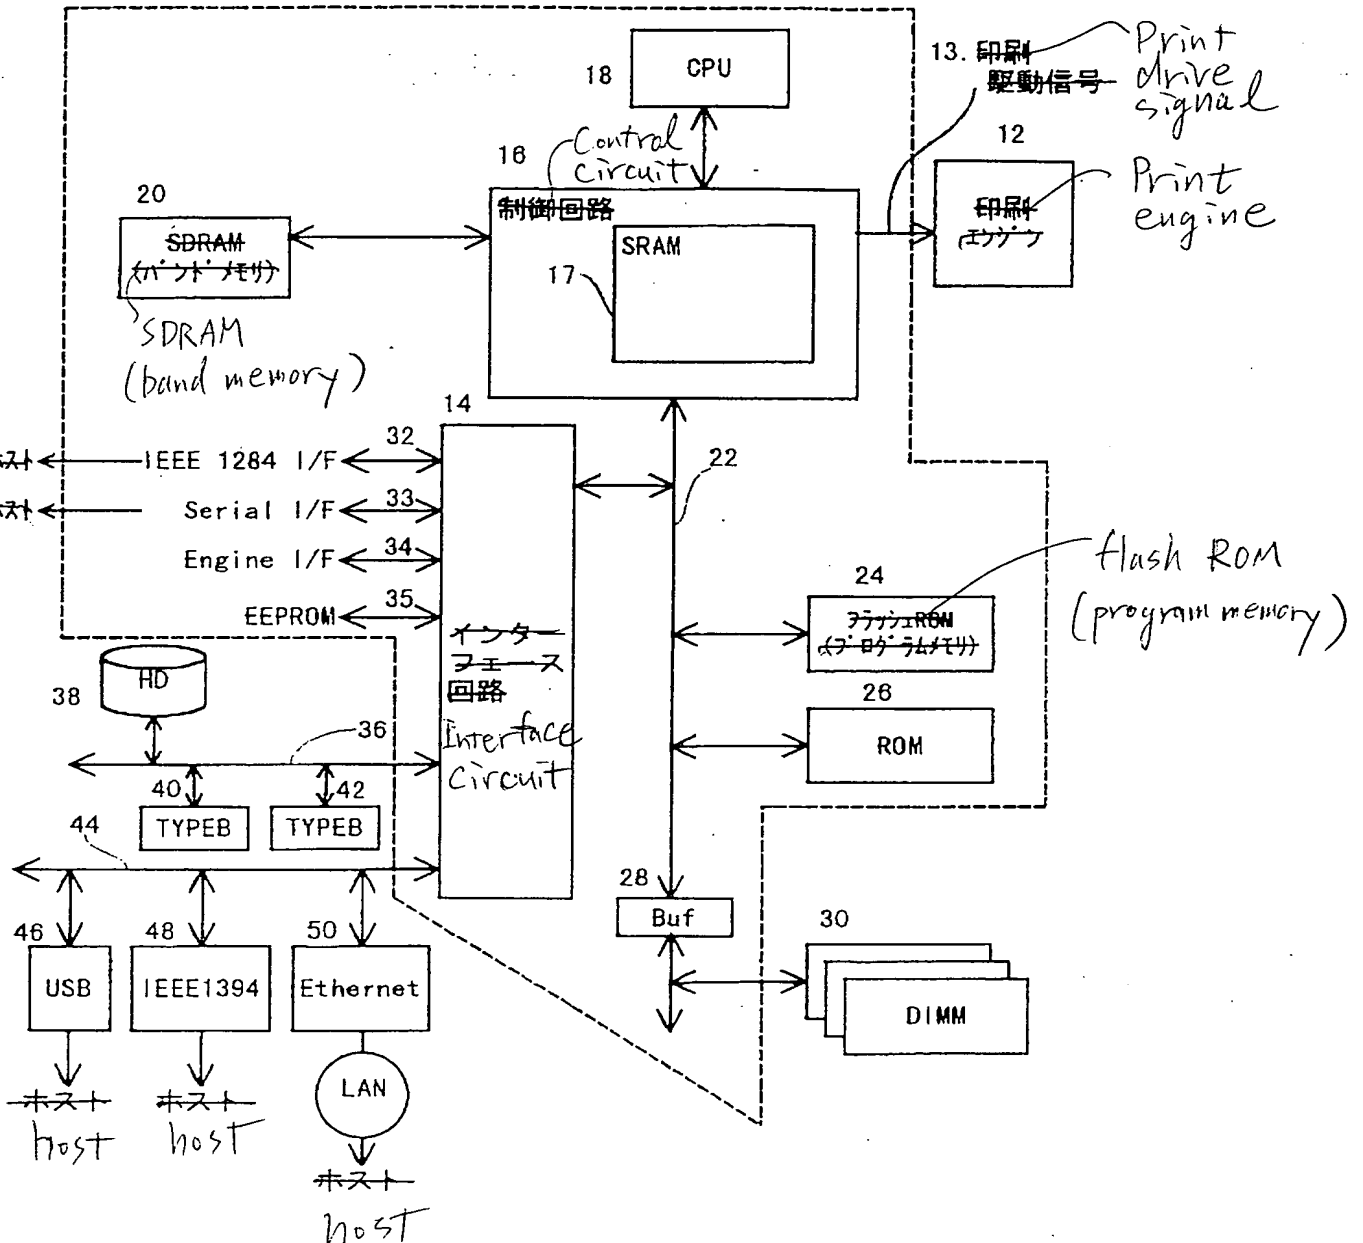 CPU
18
13. 印刷
駆動信号
Print
drive
signal
16
Control
circuit
制御回路
12
印刷
エンジン
Print
engine
20
SDRAM
(バンドメモリ)
SDRAM
(band memory)
SRAM
17
14
ホスト
IEEE 1284 I/F
32
ホスト
Serial I/F
33
Engine I/F
34
EEPROM
35
22
インター
フェース
回路
Interface
Circuit
24
フラッシュROM
(プログラムメモリ)
flash ROM
(program memory)
26
ROM
HD
38
36
40
TYPEB
42
TYPEB
44
28
Buf
30
DIMM
46
USB
48
IEEE1394
50
Ethernet
LAN
ホスト
host
ホスト
host
ホスト
host